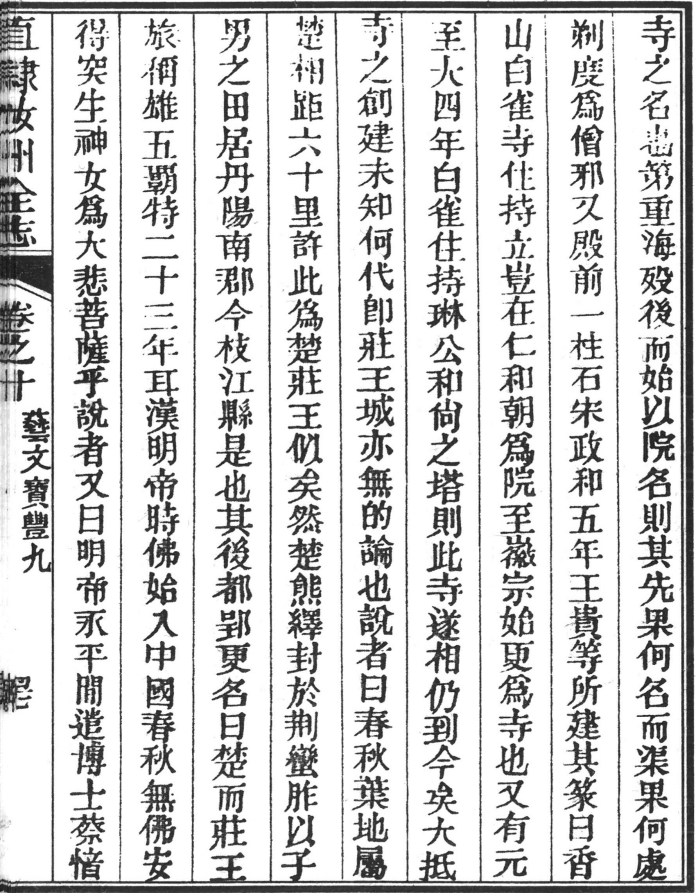 寺之名也第重海歿後而始以院名則其先果何名而渠果何處
剃度爲僧邪又殿前一柱石宋政和五年王貴等所建其篆曰香
山白雀寺住持立豈在仁和朝爲院至徽宗始更爲寺也又有元
至大四年白雀住持琳公和尙之塔則此寺遂相仍到今矣大抵
寺之創建未知何代卽莊王城亦無的論也說者曰春秋葉地屬
楚相距六十里許此爲楚莊王似矣然楚熊繹封於荆蠻胙以子
男之田居丹陽南郡今枝江縣是也其後都郢更名曰楚而莊王
旅稱雄五霸特二十三年耳漢明帝時佛始入中國春秋無佛安
得突生神女爲大悲菩薩乎說者又曰明帝永平間遣博士蔡愔
直隸汝州全志 卷之十 藝文寶豐九